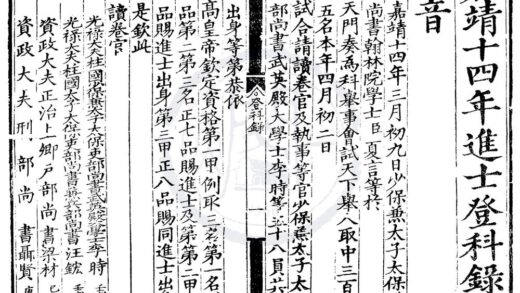 靖十四年進士登科錄
音
嘉靖十四年三月初九日少保兼太子太保
尚書翰林院學士臣夏言等於
天門奏為科舉事會試天下舉人取中三百
五名本年四月初二日
試合請讀卷官及執事等官少保兼太子太
部尚書武英殿大學士李時等五十八員其
登科錄 一
出身等第恭依
高皇帝欽定資格第一甲例取三名第一名
品第二第三名正七品賜進士及第第二甲
品賜進士出身第三甲正八品賜同進士出
是欽此
讀卷官
光祿大夫柱國少保兼太子太保吏部尚書武英殿大學士李時
光祿大夫柱國太子太保吏部尚書兼兵部尚書汪鋐
資政大夫正治上卿戶部尚書梁材
資政大夫刑部尚書聶賢